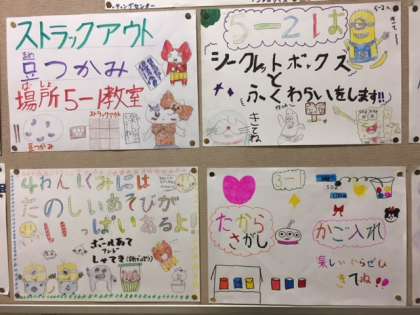 ストラックアウト
まめ
豆つかみ
ばしょ
場所5-1教室
ストラックアウト
豆つかみ
5-2は
シークレットボックス
と
ふくわらいをします!!
きてね
4ねんくみには
たのしいあそびが
いっぱいあるよ!
ボールあて
しゃてき
たから
さがし
かご入れ
楽しいからぜひ
きてね!!